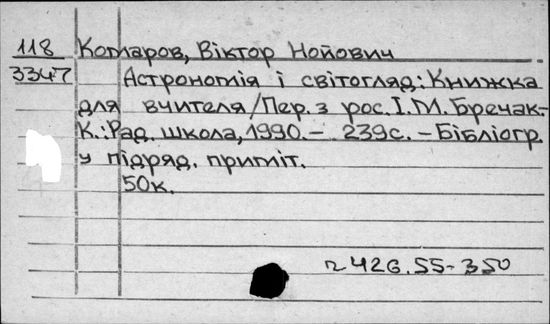 118 Комаров, Віктор Нойович
3347 Астрономія і світогляд: Книжка
для вчителя/Пер. з рос. І.М. Бречак.-
К.: Рад. школа, 1990.- 239с. - Бібліогр.
у підряд. приміт.
50к.
г426.55-350